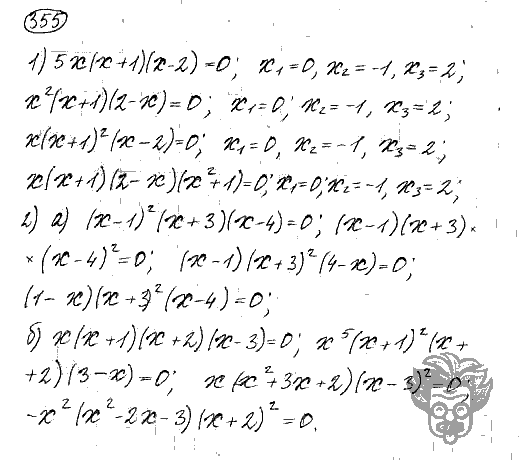 355
1) 5x(x+1)(x-2)=0; x₁=0, x₂=-1, x₃=2;
x²(x+1)(2-x)=0; x₁=0; x₂=-1, x₃=2;
x(x+1)²(x-2)=0; x₁=0, x₂=-1, x₃=2;
x(x+1)(2-x)(x²+1)=0; x₁=0; x₂=-1, x₃=2;
2) а) (x-1)²(x+3)(x-4)=0; (x-1)(x+3)×
×(x-4)²=0; (x-1)(x+3)²(4-x)=0;
(1-x)(x+3)²(x-4)=0;
б) x(x+1)(x+2)(x-3)=0; x⁵(x+1)²(x+
+2)(3-x)=0; x(x²+3x+2)(x-3)²=0;
-x²(x²-2x-3)(x+2)²=0.